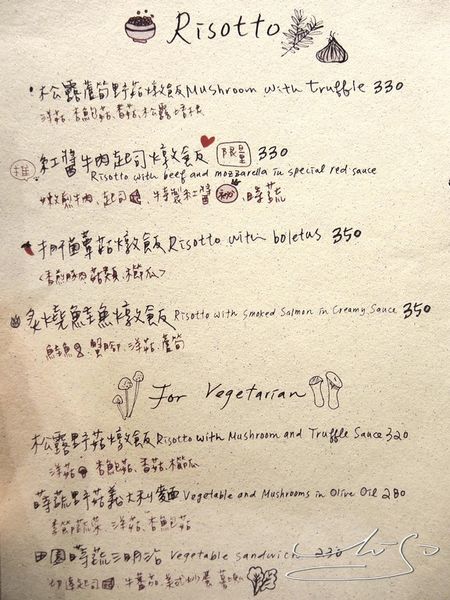 Risotto
松露蘆筍野菇燉飯 Mushroom with truffle 330
洋菇、杏鮑菇、香菇、松露
推 紅醬牛肉起司燉飯 限量 330
Risotto with beef and mozzarella in special red sauce
嫩煎牛肉、起司、特製紅醬、時蔬
牛肝菌蕈菇燉飯 Risotto with boletus 350
菇類、櫛瓜
炙燒鮭魚燉飯 Risotto with Smoked Salmon in Creamy Sauce 350
鮭魚、蟹腳、洋菇、蘆筍
For Vegetarian
松露野菇燉飯 Risotto with Mushroom and Truffle Sauce 320
洋菇、杏鮑菇、香菇、櫛瓜
時蔬野菇義大利麵 Vegetable and Mushrooms in Olive Oil 280
季節蔬菜、洋菇、杏鮑菇
田園時蔬三明治 Vegetable sandwich 230
切達起司、牛蕃茄、美式炒蛋